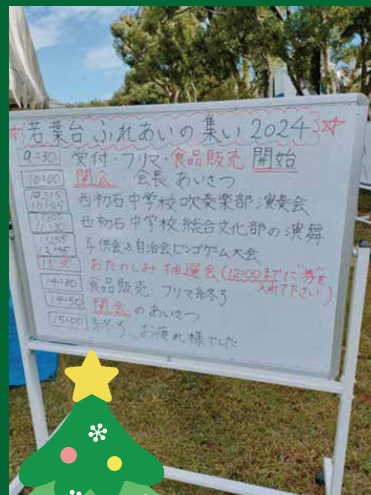 若葉台ふれあいの集い2024
9:30 受付・フリマ・食品販売 開始
10:00 開会 会長あいさつ
西初石中学校 吹奏楽部 演奏会
西初石中学校 総合文化部の演舞
子供会&自治会ビンゴゲーム大会
おたのしみ抽選会(12:00までに券を入れて下さい)
14:30 食品販売・フリマ終了
14:50 閉会のあいさつ
15:00 終了 お疲れ様でした